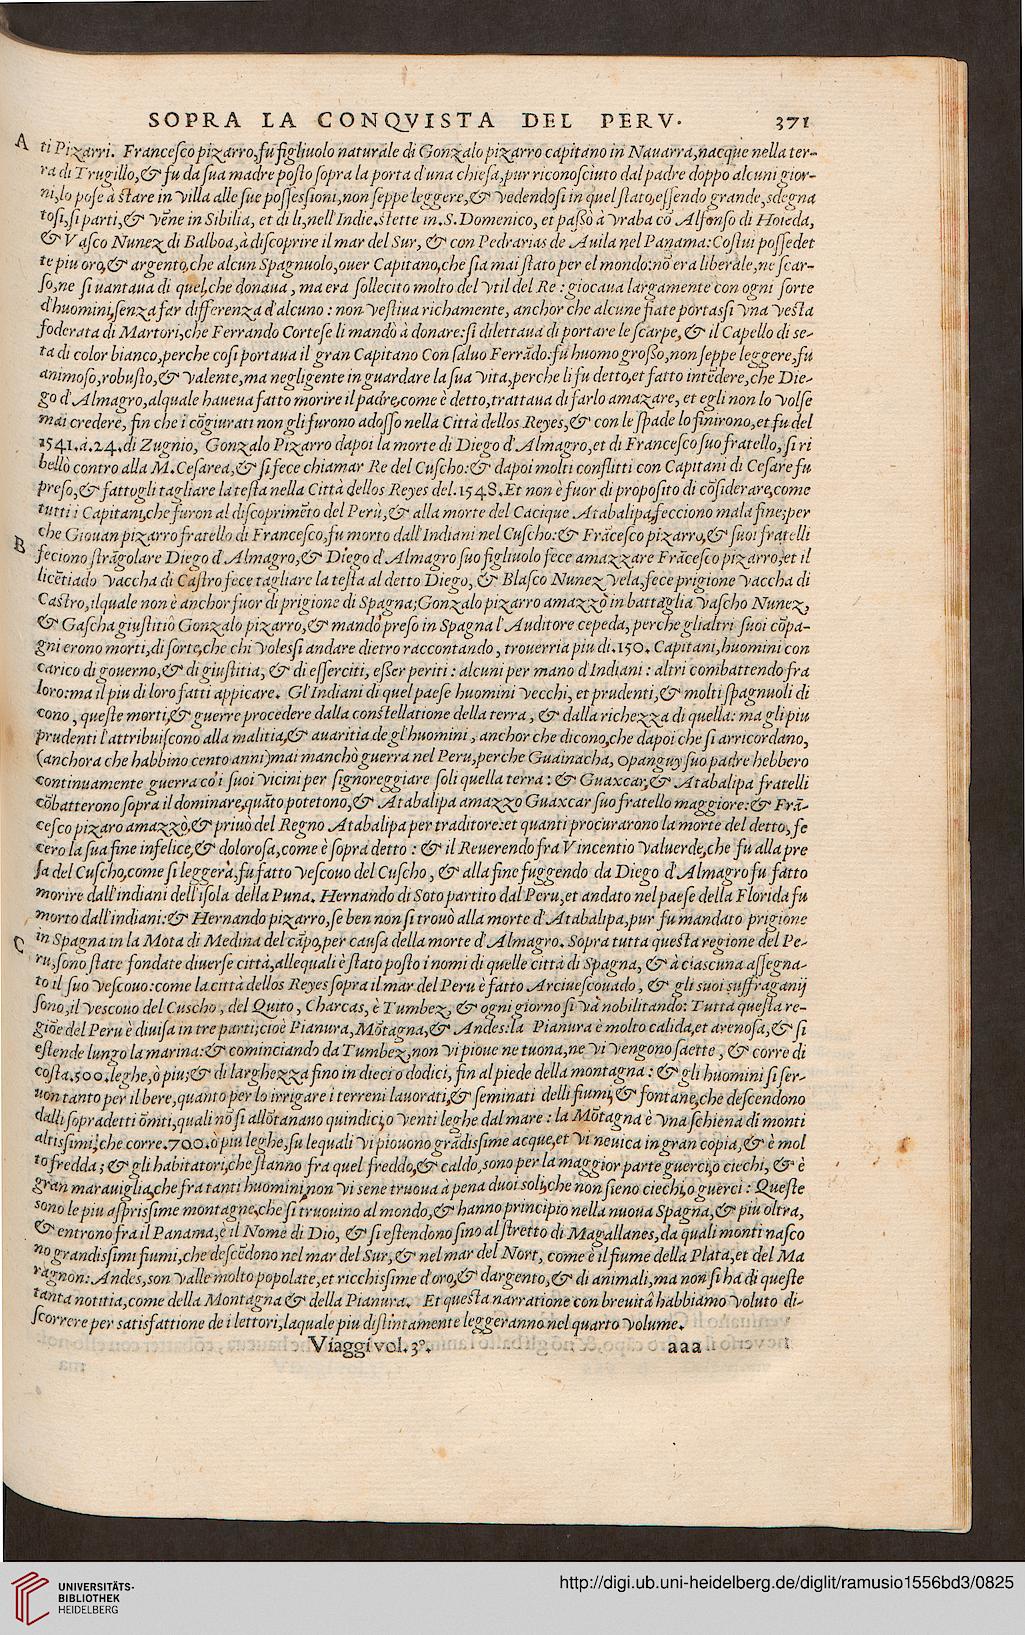 SOPRA LA CONQVISTA DEL PERV. 371
A ti Pizarri. Francesco pizarro,fu figliuolo naturale di Gonzalo pizarro capitano in Nauarra,nacque nella ter-
ra di Trugillo,& fu da sua madre posto sopra la porta d'una chiesa,pur riconosciuto dal padre doppo alcuni gior-
ni,lo pose a stare in villa alle sue possessioni,non seppe leggere,& vedendosi in quel stato,essendo grande,sdegna
tosi,si parti,& vēne in Sibilia, et di li,nell'Indie.stette in.S.Domenico, et passò à Vraba cō Alfonso di Hoieda,
& Vasco Nunez di Balboa,à discoprire il mar del Sur, & con Pedrarias de Auila nel Panama:Costui possedet
te piu oro,& argento,che alcun Spagnuolo,ouer Capitano,che sia mai stato per el mondo:nō era liberale,ne scar-
so,ne si uantaua di quel,che donaua, ma era sollecito molto del vtil del Re : giocaua largamente con ogni sorte
d'huomini,senza far differenza d'alcuno : non vestiua richamente, anchor che alcune fiate portassi vna vesta
foderata di Martori,che Ferrando Cortese li mandò à donare:si dilettaua di portare le scarpe,& il Capello di se-
ta di color bianco,perche cosi portaua il gran Capitano Consaluo Ferrādo:fu huomo grosso,non seppe leggere,fu
animoso,robusto,& valente,ma negligente in guardare la sua vita,perche li fu detto,et fatto intēdere,che Die-
go d'Almagro,alquale haueua fatto morire il padre,come è detto,trattaua di farlo amazare, et egli non lo volse
mai credere, fin che i cōgiurati non gli furono adosso nella Città dellos Reyes,& con le spade lo finirono,et fu del
1541.a.24.di Zugnio, Gonzalo Pizarro dapoi la morte di Diego d'Almagro,et di Francesco suo fratello, si ri
bellò contro alla M.Cesarea,& si fece chiamar Re del Cuscho:& dapoi molti conflitti con Capitani di Cesare fu
preso,& fattogli tagliare la testa nella Città dellos Reyes del.1548.Et non è fuor di proposito di cōsiderare,come
tutti i Capitani,che furon al discoprimēto del Perù,& alla morte del Cacique Atabalipa,fecciono mala fine;per
che Giouan pizarro fratello di Francesco,fu morto dall'Indiani nel Cuscho:& Frācesco pizarro,& suoi fratelli
B feciono strāgolare Diego d'Almagro,& Diego d'Almagro suo figliuolo fece amazzare Frācesco pizarro,et il
licētiado vaccha di Castro fece tagliare la testa al detto Diego, & Blasco Nunez vela,fece prigione vaccha di
Castro,ilquale non è anchor fuor di prigione di Spagna;Gonzalo pizarro amazzò in battaglia vascho Nunez,
& Gascha giustitiò Gonzalo pizarro,& mandò preso in Spagna l'Auditore cepeda, perche glialtri suoi cōpa-
gni erono morti,di sorte,che chi volessi andare dietro raccontando, trouerria piu di.150.Capitani,huomini con
carico di gouerno,& di giustitia, & di esserciti, esser periti : alcuni per mano d'Indiani : altri combattendo fra
loro:ma il piu di loro fatti appicare. Gl'Indiani di quel paese huomini vecchi, et prudenti,& molti spagnuoli di
cono, queste morti,& guerre procedere dalla constellatione della terra, & dalla richezza di quella: ma gli piu
prudenti l'attribuiscono alla malitia,& auaritia de gl'huomini, anchor che dicono,che dapoi che si arricordano,
(anchora che habbino cento anni)mai manchò guerra nel Peru,perche Guainacha, Opanguy suo padre hebbero
continuamente guerra cō i suoi vicini per signoreggiare soli quella terra : & Guaxcar,& Atabalipa fratelli
cōbatterono sopra il dominare,quāto potetono,& Atabalipa amazzo Guaxcar suo fratello maggiore:& Frā-
cesco pizaro amazzò,& priuò del Regno Atabalipa per traditore:et quanti procurarono la morte del detto, fe
cero la sua fine infelice,& dolorosa,come è sopra detto : & il Reuerendo fra Vincentio valuerde,che fu alla pre
sa del Cuscho,come si leggerà,fu fatto vescouo del Cuscho, & alla fine fuggendo da Diego d'Almagro fu fatto
morire dall'indiani dell'isola della Puna. Hernando di Soto partito dal Peru,et andato nel paese della Florida fu
morto dall'indiani:& Hernando pizarro,se ben non si trouò alla morte d'Atabalipa,pur fu mandato prigione
C in Spagna in la Mota di Medina del cāpo,per causa della morte d'Almagro. Sopra tutta questa regione del Pe-
ru,sono state fondate diuerse città,allequali è stato posto i nomi di quelle città di Spagna, & à ciascuna assegna-
to il suo vescouo:come la città dellos Reyes sopra il mar del Peru è fatto Arciuescouado, & gli suoi suffraganij
sono,il vescouo del Cuscho, del Quito, Charcas, è Tumbez, & ogni giorno si và nobilitando: Tutta questa re-
giōe del Peru è diuisa in tre parti;cioè Pianura,Mōtagna,& Andes:la Pianura è molto calida,et arenosa,& si
estende lungo la marina:& cominciando da Tumbez,non vi pioue ne tuona,ne vi vengono saette, & corre di
costa.500.leghe,ò piu;& di larghezza fino in dieci o dodici, fin al piede della montagna : & gli huomini si ser-
uon tanto per il bere,quanto per lo irrigare i terreni lauorati,& seminati delli fiumi,& fontane,che descendono
dalli sopradetti ōmiti,quali nō si allōtanano quindici,o venti leghe dal mare : la Mōtagna è vna schiena di monti
altissimi,che corre.700.ò piu leghe,su lequali vi piouono grādissime acque,et vi neuica in gran copia,& è mol
to fredda ; & gli habitatori,che stanno fra quel freddo,& caldo,sono per la maggior parte guerci,o ciechi, & è
gran marauiglia,che fra tanti huomini,non vi sene truoua à pena duoi soli,che non sieno ciechi,o guerci : Queste
sono le piu asprissime montagne,che si truouino al mondo,& hanno principio nella nuoua Spagna,& piu oltra,
& entrono fra il Panama,è il Nome di Dio, & si estendono sino al stretto di Magallanes,da quali monti nasco
no grandissimi fiumi,che descēdono nel mar del Sur,& nel mar del Nort, come è il fiume della Plata,et del Ma
ragnon:Andes,son valle molto popolate,et ricchissime d'oro,& d'argento,& di animali,ma non si ha di queste
tanta notitia,come della Montagna & della Pianura. Et questa narratione con breuità habbiamo voluto di-
scorrere per satisfattione de i lettori,laquale piu distintamente leggeranno nel quarto volume.
Viaggi vol.3º. aaa
UNIVERSITÄTS-
BIBLIOTHEK
HEIDELBERG
http://digi.ub.uni-heidelberg.de/diglit/ramusio1556bd3/0825